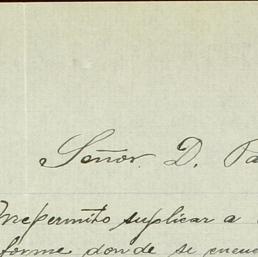 Señor D. Pa
me permito suplicar a
forme donde se encue